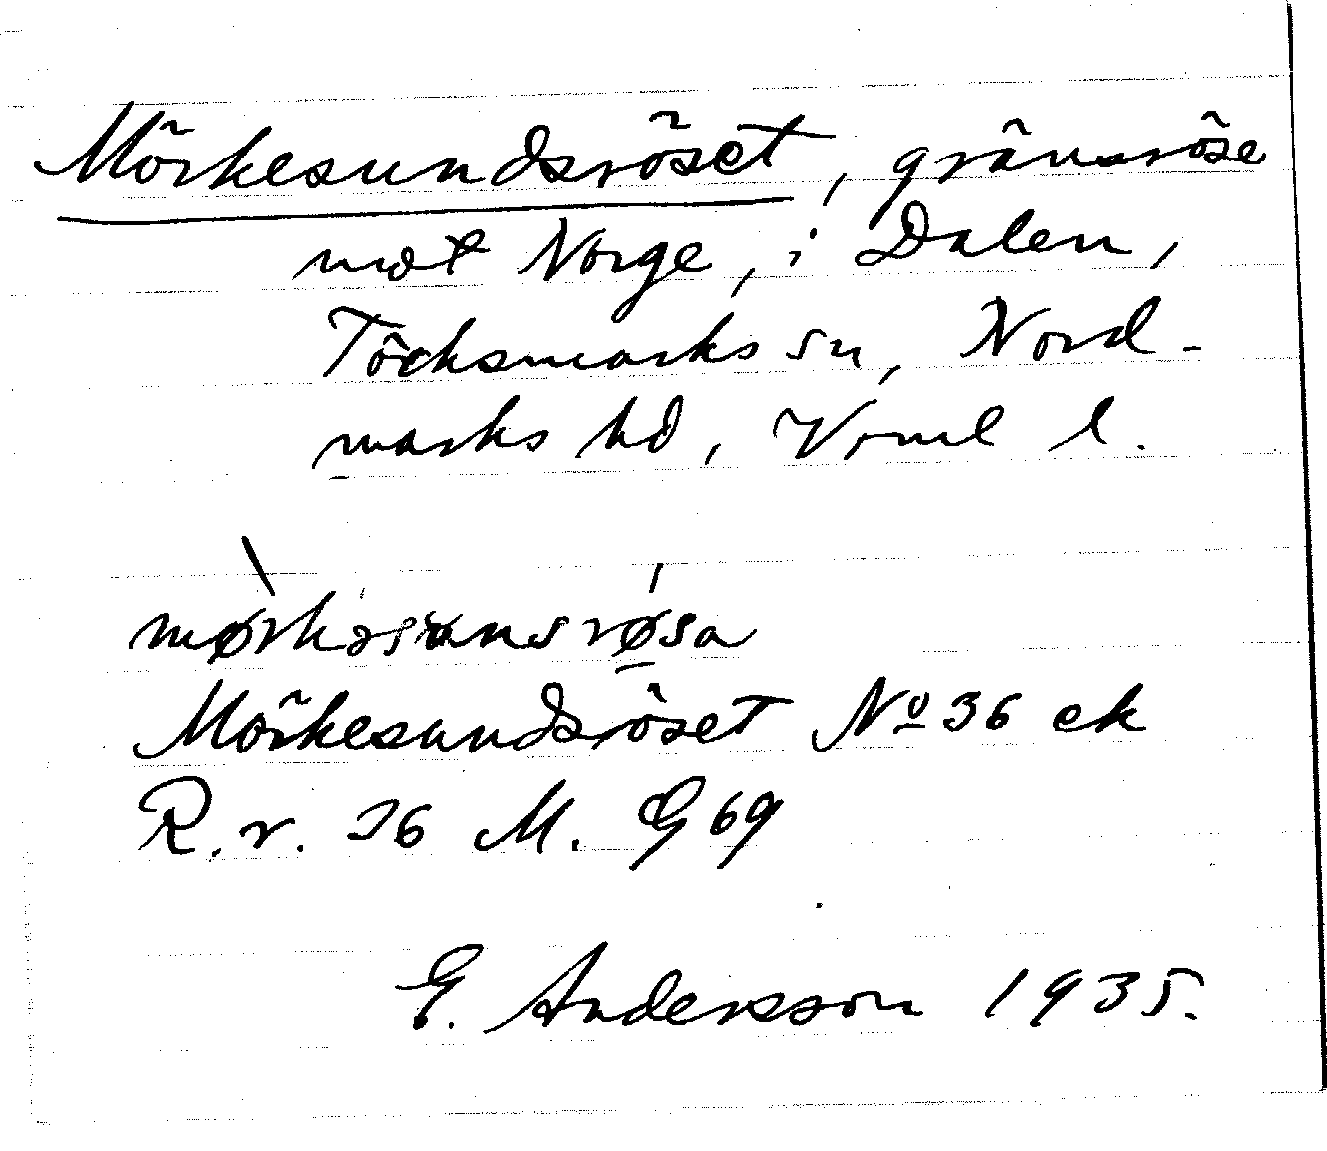 Mörkesundsröset, gränsröse
mot Norge, i Dalen,
Töcksmarks sn, Nord-
marks hd, Vrml l.
mø̀rkəsunsrǿ̱sa
Mörkesundsröset No 36 ek
R.r. 36 M. G 69
G. Andersson 1935.